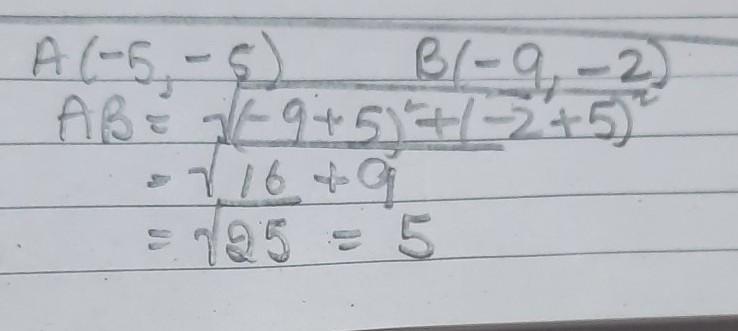 A(-5, -5) B(-9, -2)
AB = √(-9+5)²+(-2+5)²
= √16 + 9
= √25 = 5